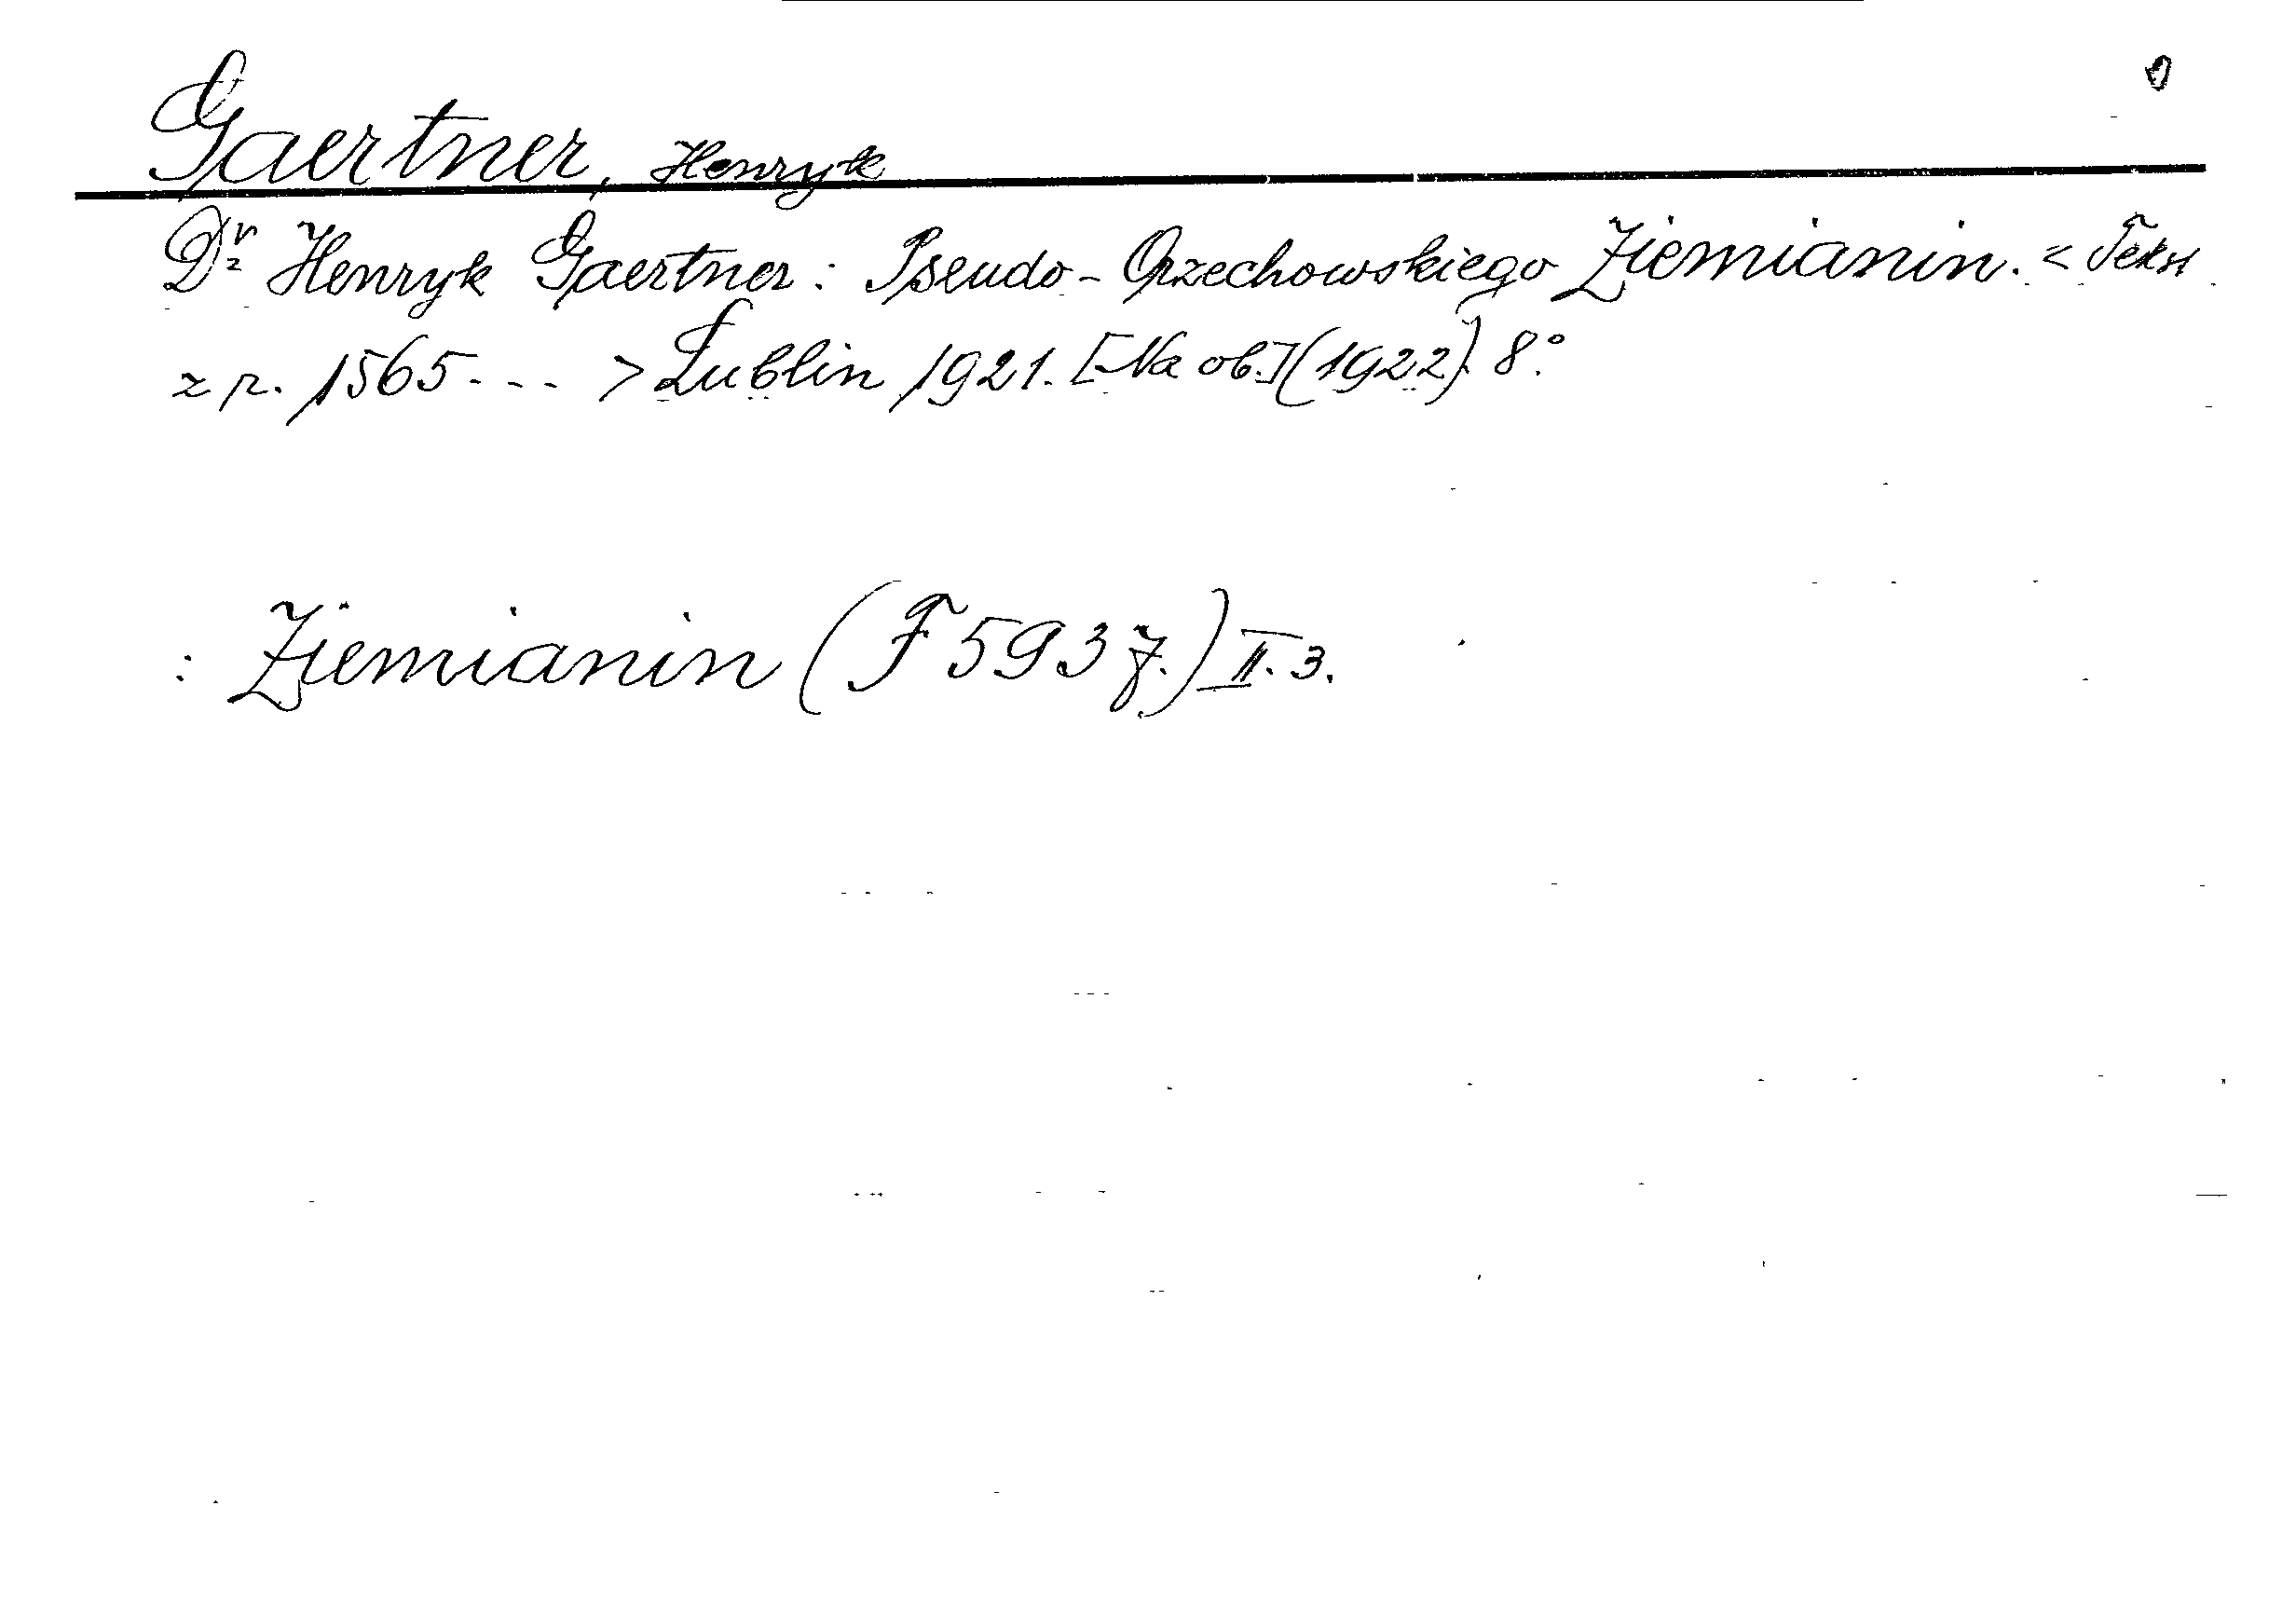 Gaertner, Henryk
Dr Henryk Gaertner: Pseudo-Orzechowskiego Ziemianin. < Tekst
z r. 1565 - - - > Lublin 1921. [Na ob.] (1922). 8°.
: Ziemianin (F 593 7.) II. 3.